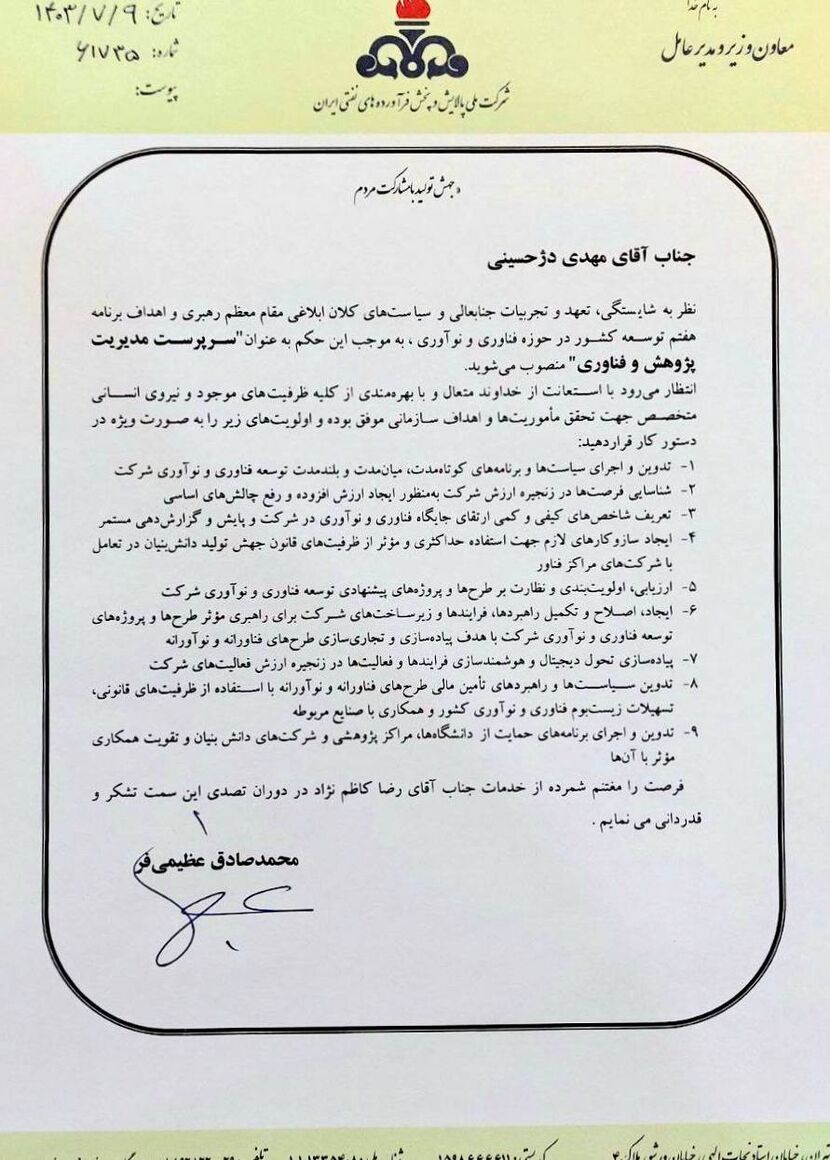 به نام خدا
معاون وزیر و مدیرعامل
شرکت ملی پالایش و پخش فرآورده های نفتی ایران
تاریخ: ۱۴۰۳/۷/۹
شماره: ۶۱۷۳۵
پیوست:
«جهش تولید با مشارکت مردم
جناب آقای مهدی دژحسینی
نظر به شایستگی، تعهد و تجربیات جنابعالی و سیاست‌های کلان ابلاغی مقام معظم رهبری و اهداف برنامه
هفتم توسعه کشور در حوزه فناوری و نوآوری ، به موجب این حکم به عنوان"سرپرست مدیریت
پژوهش و فناوری" منصوب می‌شوید.
انتظار می‌رود با استعانت از خداوند متعال و با بهره‌مندی از کلیه ظرفیت‌های موجود و نیروی انسانی
متخصص جهت تحقق مأموریت‌ها و اهداف سازمانی موفق بوده و اولویت‌های زیر را به صورت ویژه در
دستور کار قراردهید:
۱- تدوین و اجرای سیاست‌ها و برنامه‌های کوتاه‌مدت، میان‌مدت و بلندمدت توسعه فناوری و نوآوری شرکت
۲- شناسایی فرصت‌ها در زنجیره ارزش شرکت به‌منظور ایجاد ارزش افزوده و رفع چالش‌های اساسی
۳- تعریف شاخص‌های کیفی و کمی ارتقای جایگاه فناوری و نوآوری در شرکت و پایش و گزارش‌دهی مستمر
۴- ایجاد سازوکارهای لازم جهت استفاده حداکثری و مؤثر از ظرفیت‌های قانون جهش تولید دانش‌بنیان در تعامل
با شرکت‌های مراکز فناور
۵- ارزیابی، اولویت‌بندی و نظارت بر طرح‌ها و پروژه‌های پیشنهادی توسعه فناوری و نوآوری شرکت
۶- ایجاد، اصلاح و تکمیل راهبردها، فرایندها و زیرساخت‌های شرکت برای راهبری مؤثر طرح‌ها و پروژه‌های
توسعه فناوری و نوآوری شرکت با هدف پیاده‌سازی و تجاری‌سازی طرح‌های فناورانه و نوآورانه
۷- پیاده‌سازی تحول دیجیتال و هوشمندسازی فرایندها و فعالیت‌ها در زنجیره ارزش فعالیت‌های شرکت
۸- تدوین سیاست‌ها و راهبردهای تأمین مالی طرح‌های فناورانه و نوآورانه با استفاده از ظرفیت‌های قانونی،
تسهیلات زیست‌بوم فناوری و نوآوری کشور و همکاری با صنایع مربوطه
۹- تدوین و اجرای برنامه‌های حمایت از دانشگاه‌ها، مراکز پژوهشی و شرکت‌های دانش بنیان و تقویت همکاری
مؤثر با آن‌ها
فرصت را مغتنم شمرده از خدمات جناب آقای رضا کاظم نژاد در دوران تصدی این سمت تشکر و
قدردانی می نمایم .
محمدصادق عظیمی‌فر